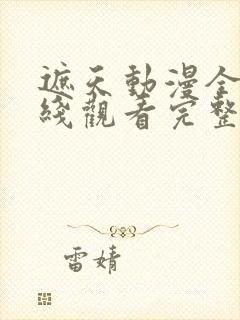 遮天動漫全
綫觀看完整
雷婧